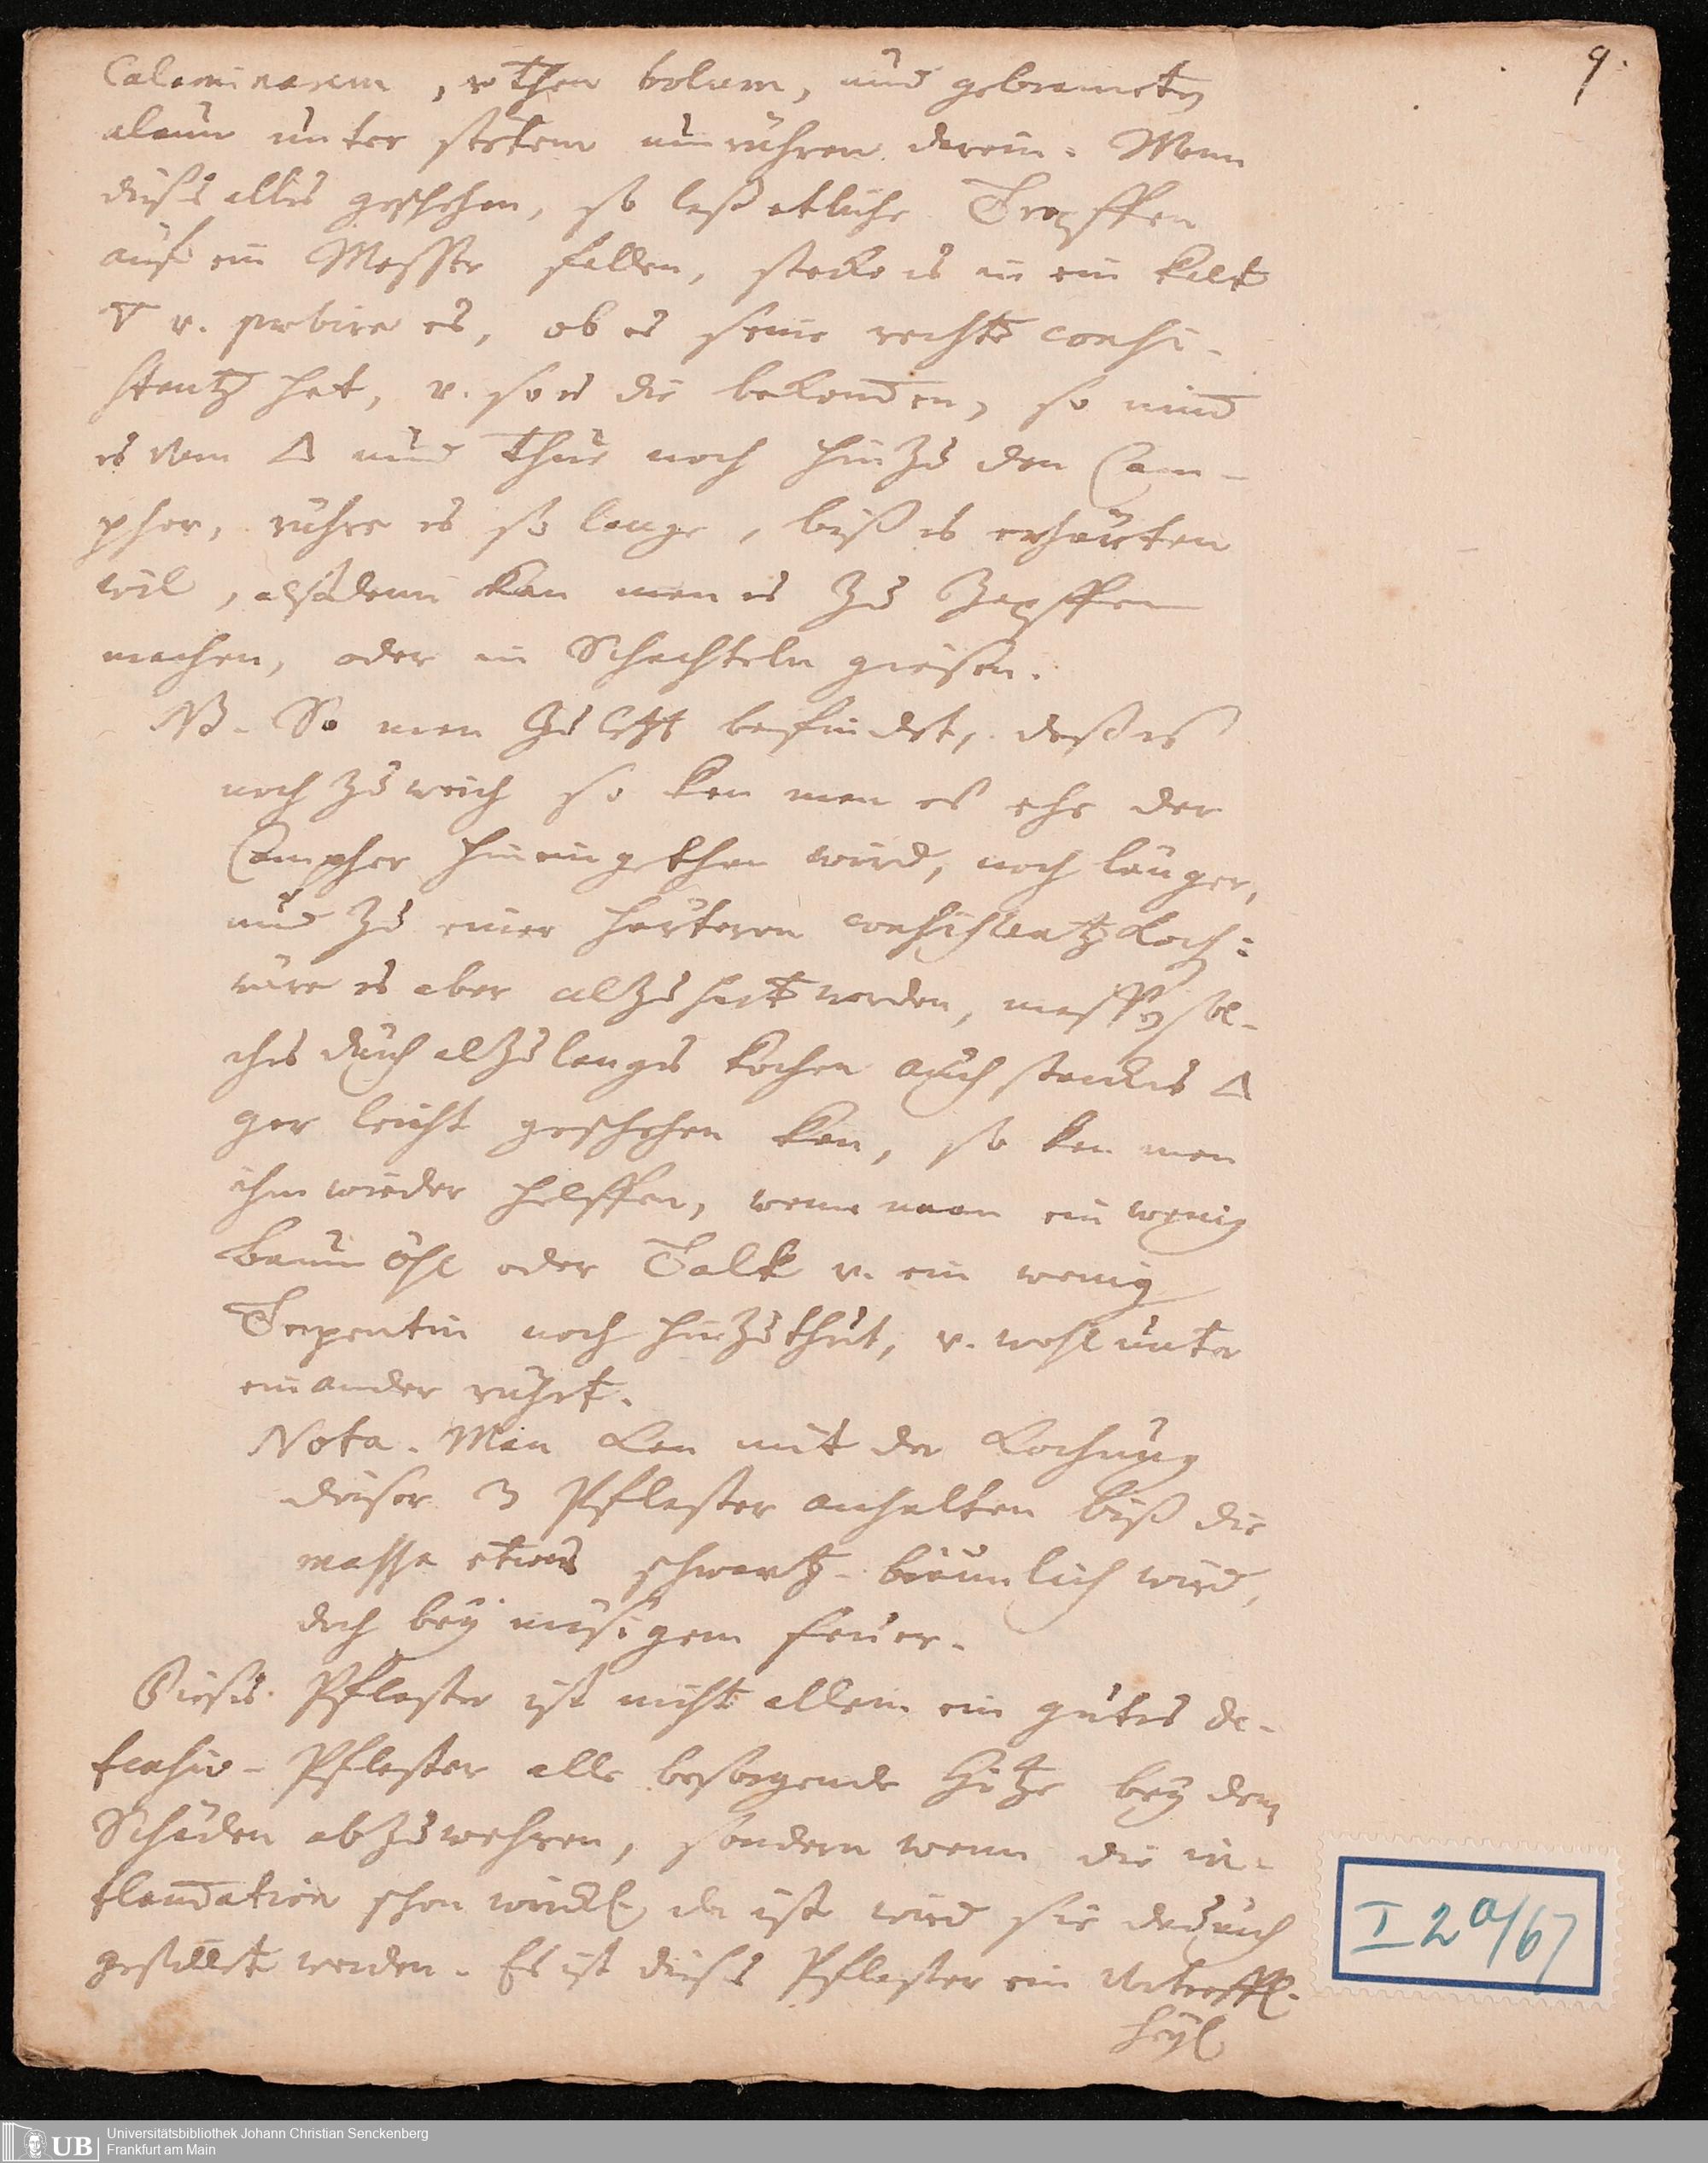 9.
Calaminarem, rothen bolum, und gebranten
alaun unter stetem umrühren darein. Wenn
dieses alles geschehen, so laß etliche Tropffen
auf ein Messer fallen, stecke es in ein kalt
🜄 v. probire es, ob es seine rechte consi-
stentz hat, v. so es die bekommen, so nim̅
es vom 🜂 und thue noch hinzu den Cam-
pher, rühre es so lange, biß es erharten
wil, alßdenn kan man es zu Zapffen
machen, oder in Schachteln giesen.
NB. So man zuletzt befindet, daß es
noch zu weich so kan man es ehe der
Campher hineingethan wird, noch länger,
und zu einer härteren consistentz koch:
wäre es aber alzu hart worden, massen sol-
ches durch alzulanges kochen auch starckes 🜂
gar leicht geschehen kan, so kan man
ihm wieder helffen, wenn man ein wenig
baum öhl oder Talk v. ein wenig
Terpentin noch hinzuthut, v. wohl unter
einander rührt.
Nota. Man kan mit der Kochung
dieser 3 Pflaster anhalten biß die
massa etwas schwartz-bräunlich wird,
doch bey mäsigem feuer.
Dieses Pflaster ist nicht allein ein gutes de-
fensiv-Pflaster alle besorgende Hitze bey den
Schäden abzuwehren, sondern wenn die in-
flam̅ation schon würckl. da ist wird sie dadurch
gestillet werden. Es ist dieses Pflaster ein vortreffl.
heyl
I 2a/67
UB
Universitätsbibliothek Johann Christian Senckenberg
Frankfurt am Main